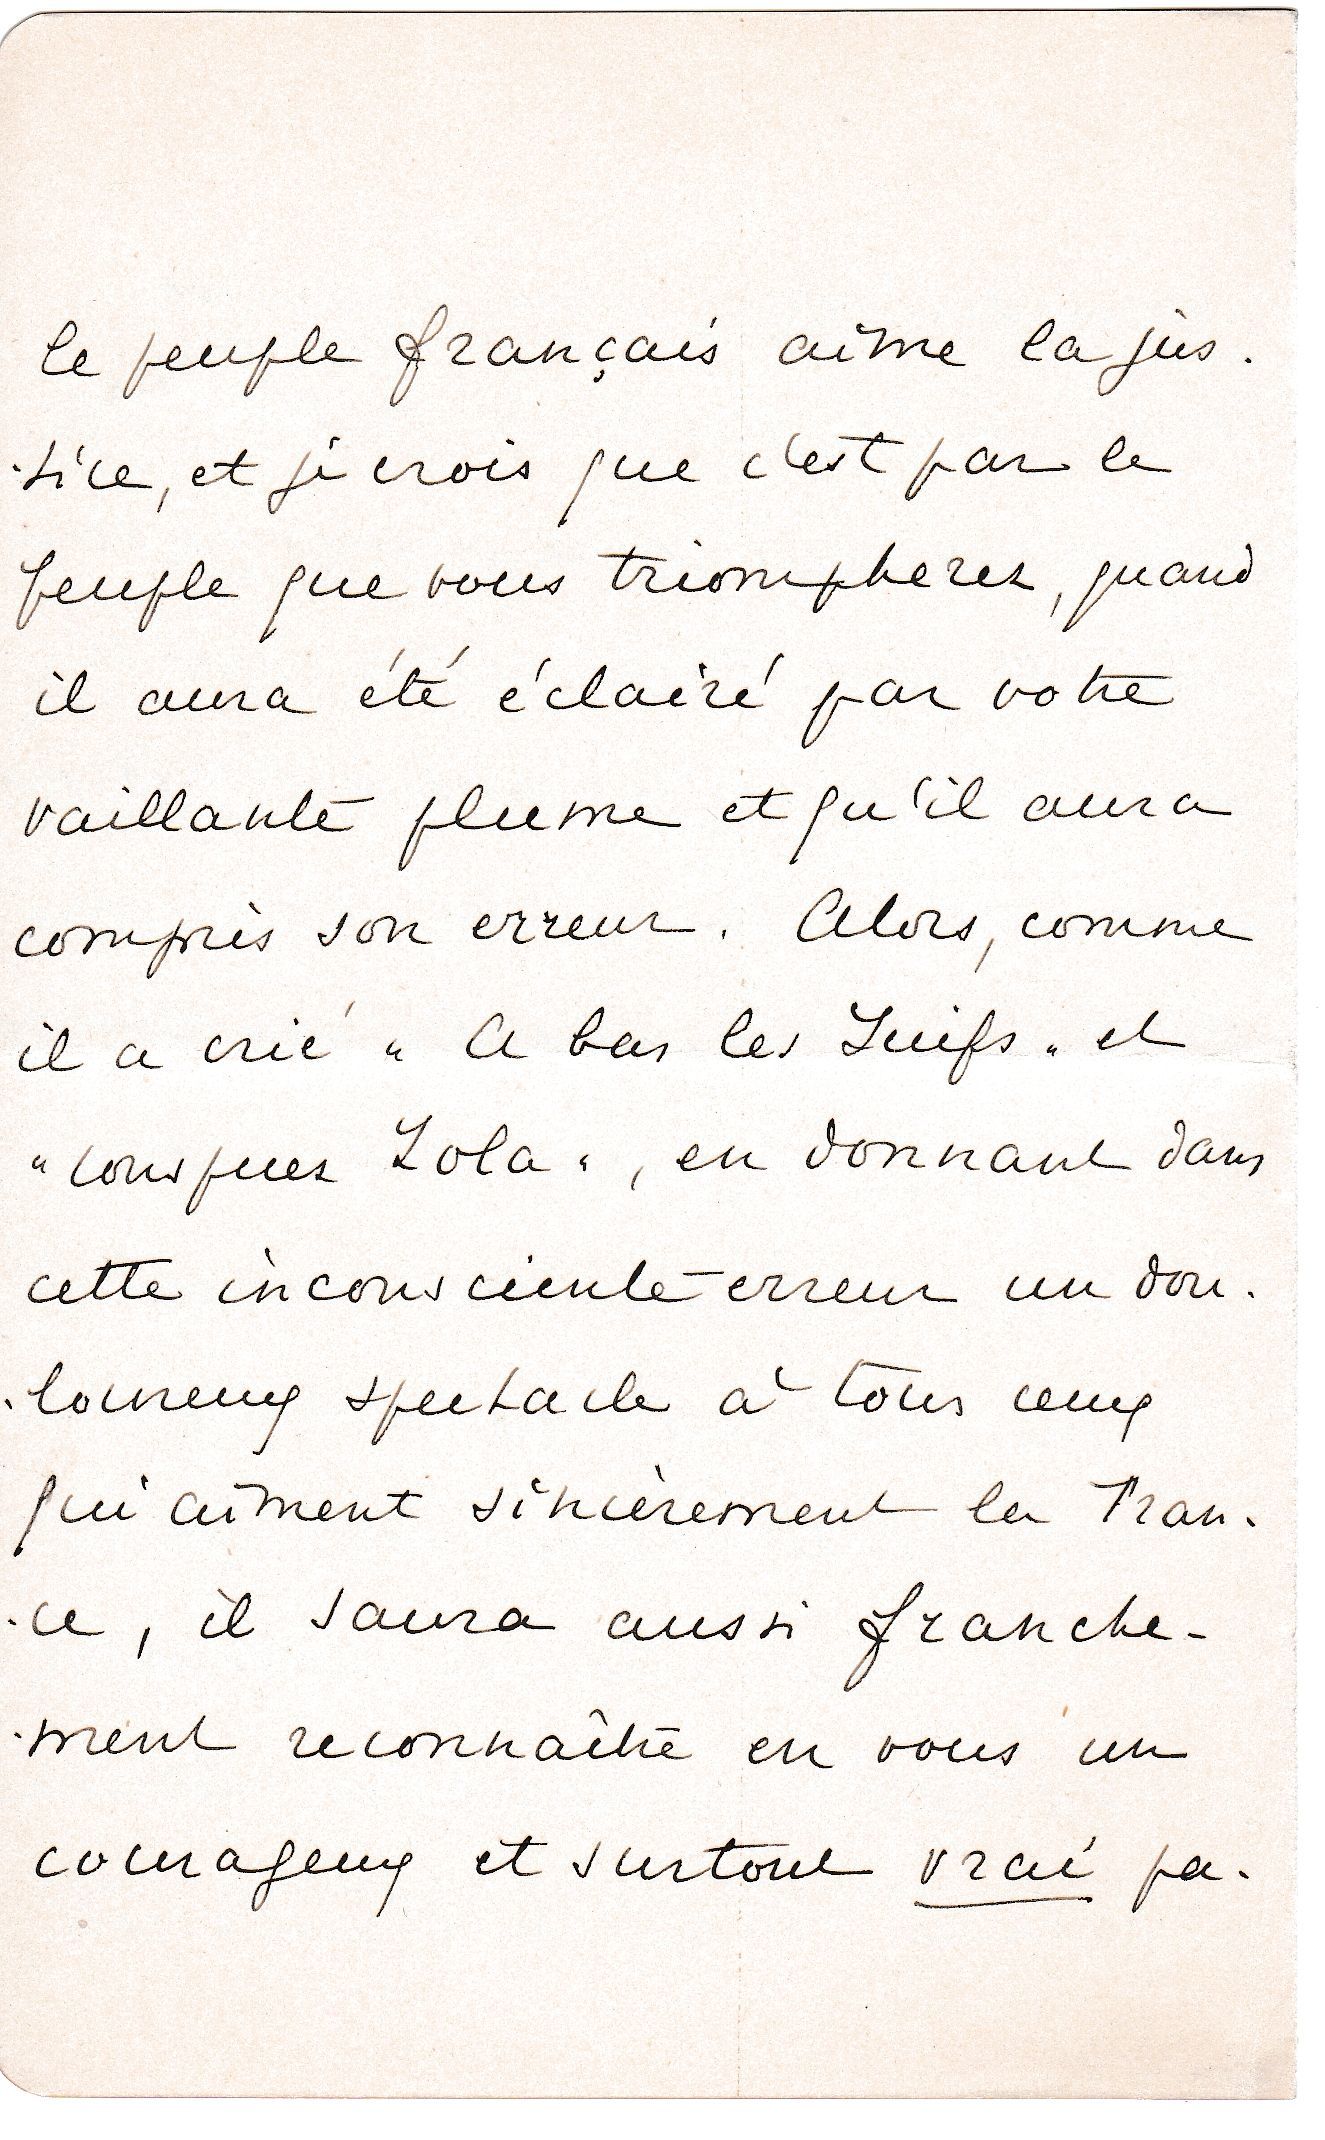 le peuple français aime la jus-
-tice, et je crois que c'est par le
peuple que vous triompherez, quand
il aura été éclairé par votre
vaillante plume et qu'il aura
compris son erreur. Alors, comme
il a crié " A bas les Juifs " et
" conspuez Zola ", en donnant dans
cette inconsciente erreur un dou-
-loureux spectacle à tous ceux
qui aiment sincèrement la Fran-
-ce, il saura aussi franche-
-ment reconnaître en vous un
courageux et surtout vrai pa-